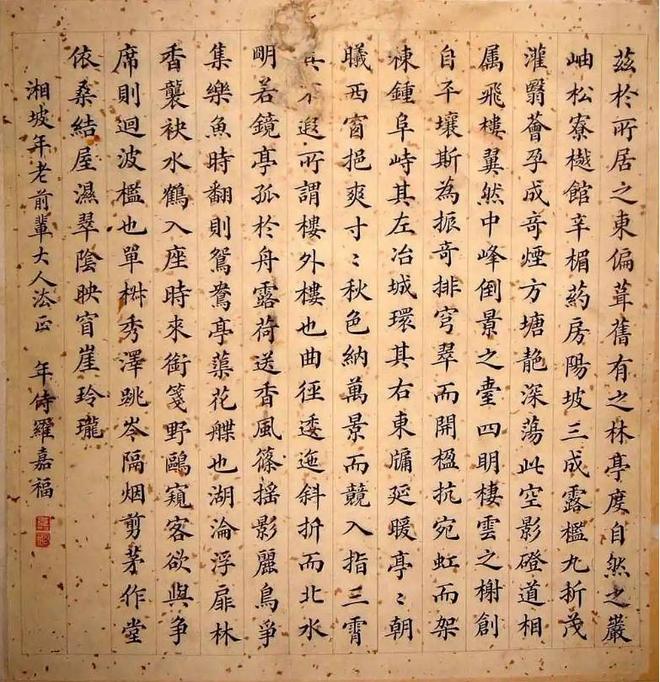 茲於所居之東偏葺舊有之林亭度自然之巖
岫松寮樾館辛楣葯房陽坡三成露檻九折茂
灌翳薈孕成奇煙方塘靘深蕩此空影磴道相
属飛樓翼然中峰倒景之臺四明棲雲之榭創
自平壤斯為振奇排穹翠而開楹抗宛虹而架
棟鍾阜峙其左冶城環其右東牖延暖亭〻朝
曦西窗挹爽寸〻秋色納萬景而競入指三霄
不遐所謂樓外樓也曲徑逶迤斜折而北水
明若鏡亭孤於舟露荷送香風篠摇影麗鳥爭
集樂魚時翻則鴛鴦亭蕖花艓也湖淪浮扉林
香襲袂水鶴入座時來銜箋野鷗窺客欲與爭
席則迴波檻也單椒秀澤跳岑隔烟剪茅作堂
依桑結屋濕翠陰映窗崖玲瓏
湘坡年老前輩大人法正 年侍羅嘉福